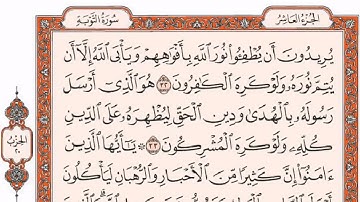 الجزء العاشر
سورة التوبة
يُرِيدُونَ أَن يُطْفِـُٔوا۟ نُورَ ٱللَّهِ بِأَفْوَٰهِهِمْ وَيَأْبَى ٱللَّهُ إِلَّآ أَن
يُتِمَّ نُورَهُۥ وَلَوْ كَرِهَ ٱلْكَٰفِرُونَ ٣٢ هُوَ ٱلَّذِىٓ أَرْسَلَ
رَسُولَهُۥ بِٱلْهُدَىٰ وَدِينِ ٱلْحَقِّ لِيُظْهِرَهُۥ عَلَى ٱلدِّينِ
كُلِّهِۦ وَلَوْ كَرِهَ ٱلْمُشْرِكُونَ ٣٣ يَٰٓأَيُّهَا ٱلَّذِينَ
ءَامَنُوٓا۟ إِنَّ كَثِيرًا مِّنَ ٱلْأَحْبَارِ وَٱلرُّهْبَانِ لَيَأْكُلُونَ
الحزب
٢٠